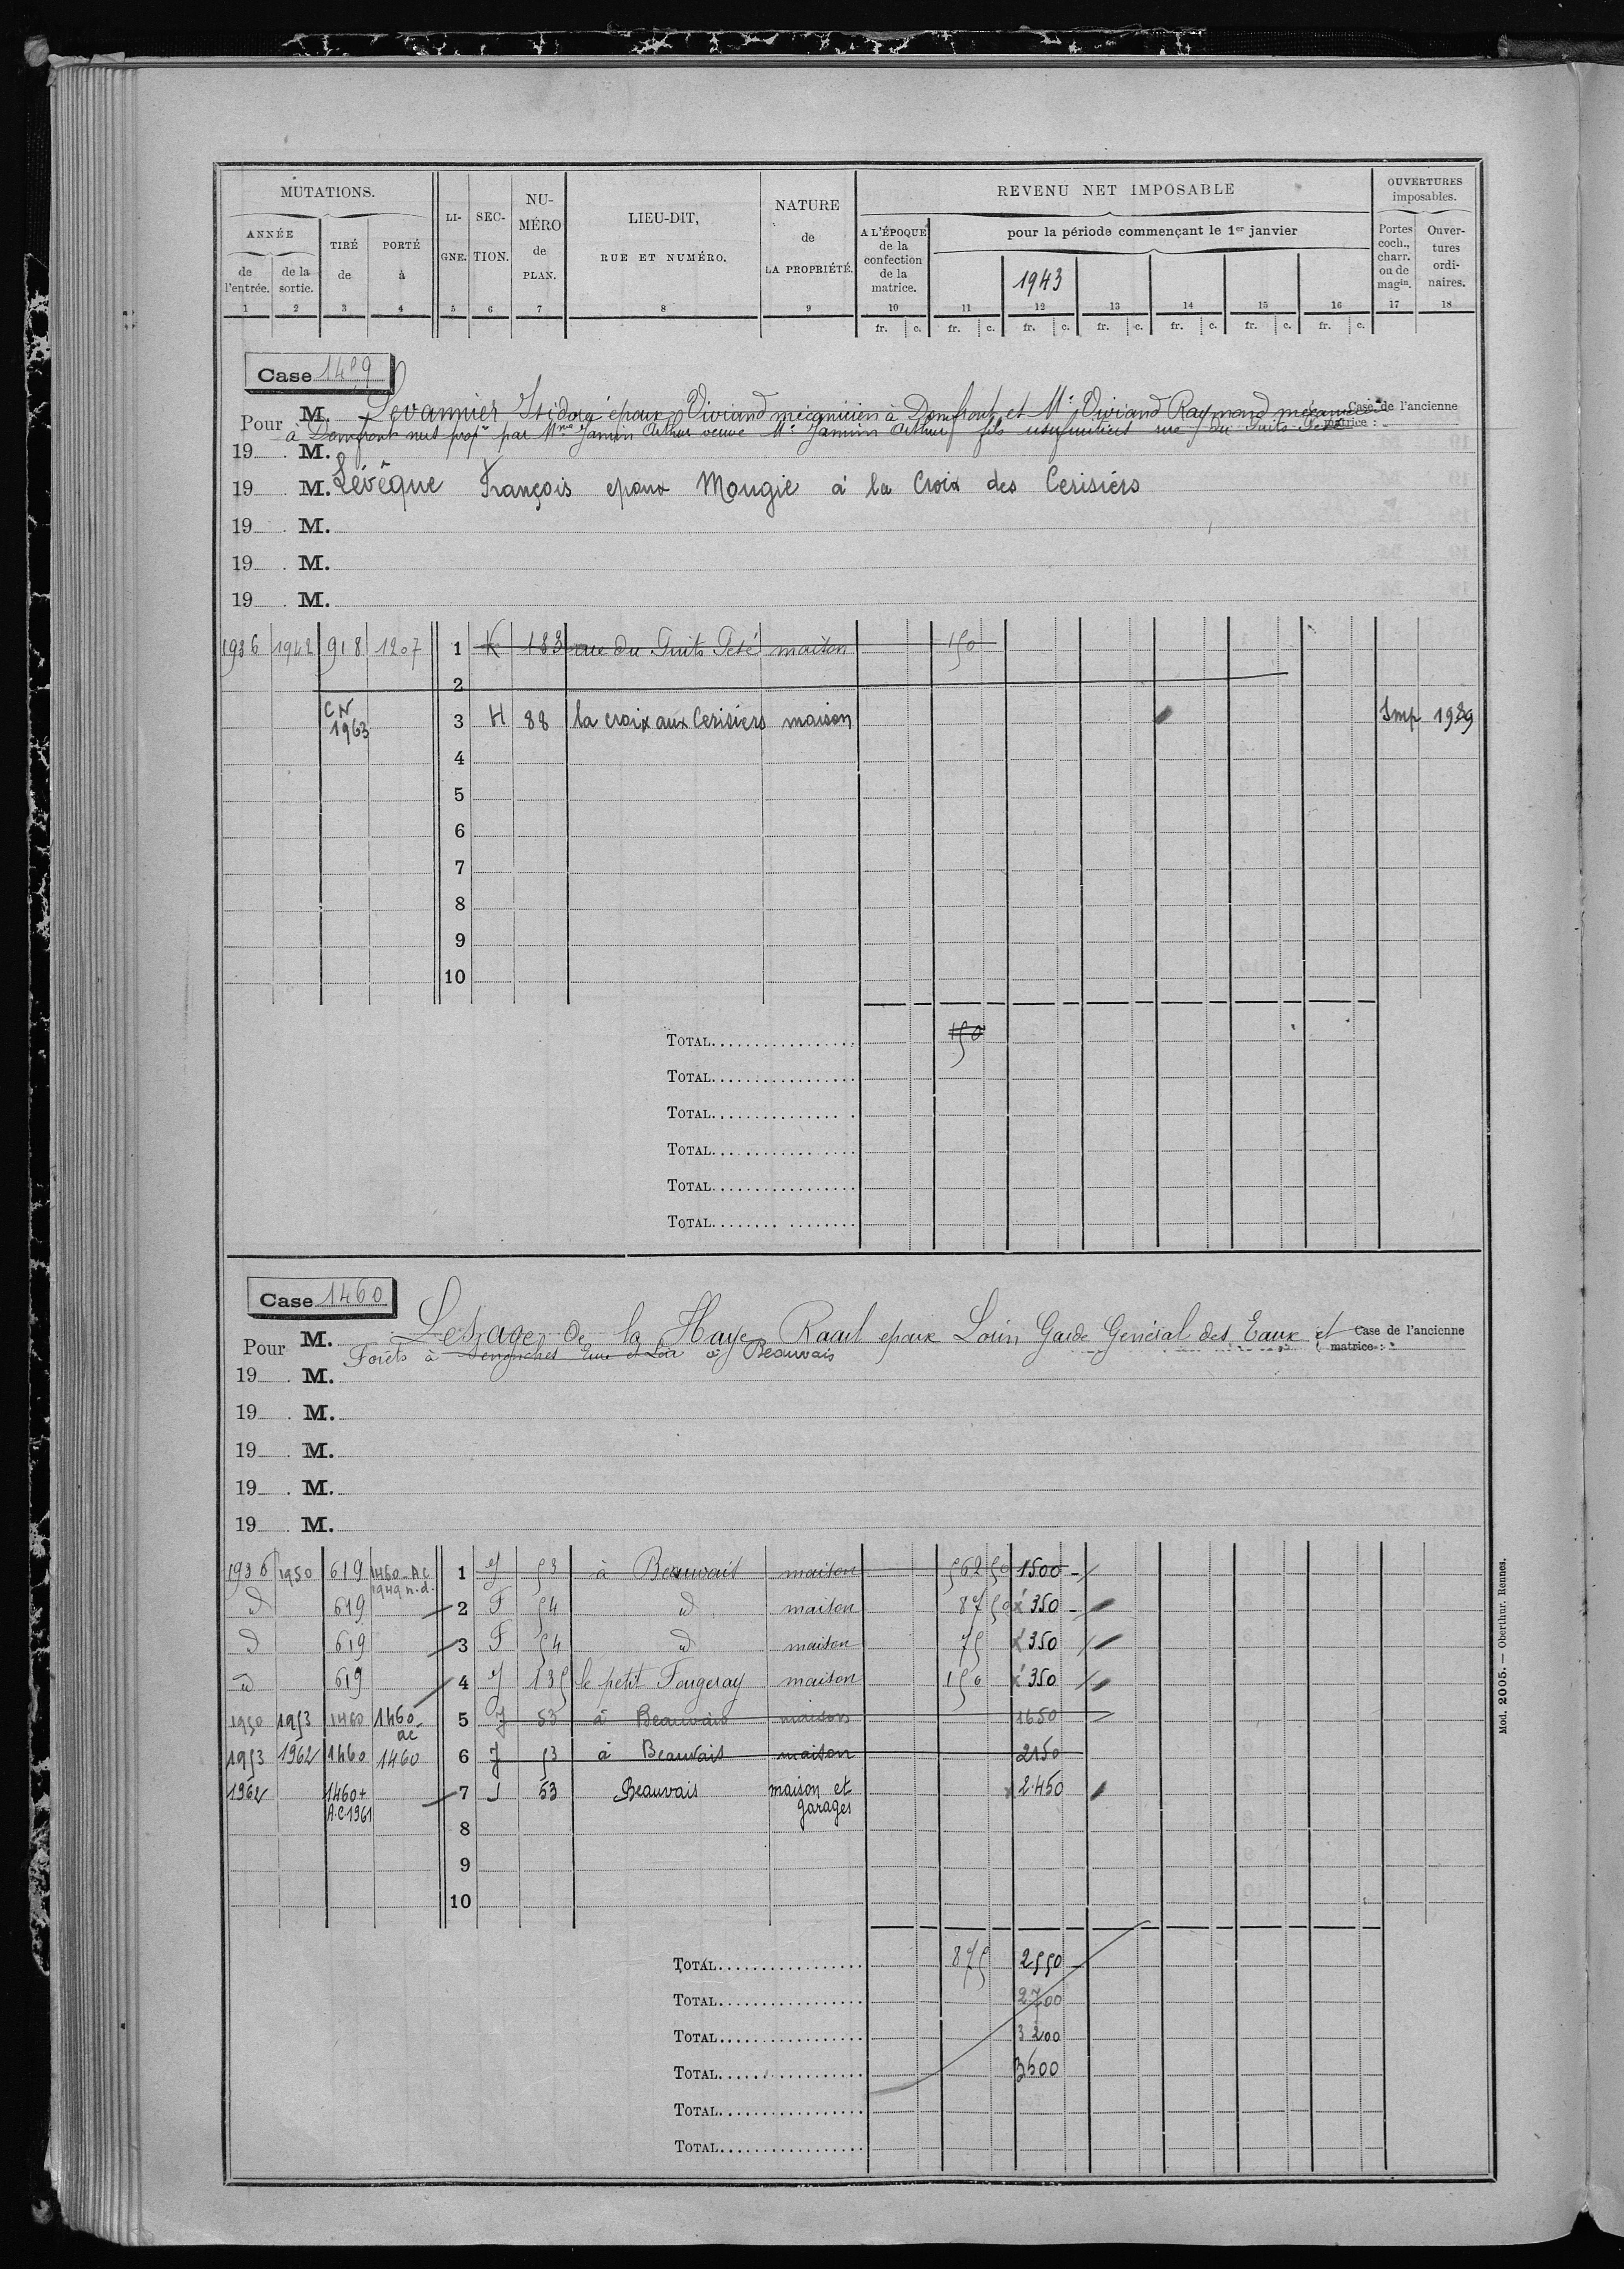 MUTATIONS.
ANNÉE
de l'entrée.
de la sortie.
TIRÉ de
PORTÉ à
LIGNE.
SECTION.
NUMÉRO de PLAN.
LIEU-DIT, RUE ET NUMÉRO.
NATURE de LA PROPRIÉTÉ.
REVENU NET IMPOSABLE
A L'ÉPOQUE de la confection de la matrice.
pour la période commençant le 1er janvier
1943
OUVERTURES imposables.
Portes coch., charr. ou de magin.
Ouvertures ordinaires.
1 2 3 4 5 6 7 8 9 10 11 12 13 14 15 16 17 18
fr. c. fr. c. fr. c. fr. c. fr. c. fr. c. fr. c.
Case 1459
Pour M. Levannier Isidore époux Viviand mécanicien à Domfront et Mr Viviand Raymond mécanicien
Case de l'ancienne matrice :
à Domfront nus prop. par Mme Jamin Arthur veuve Mr Jamin Arthur fils usufruitiers rue du Puits
19 M.
19 M. Lévêque François epoux Mongie à la Croix des Cerisiers
19 M.
19 M.
19 M.
1936 1942 918 1207 1 K 183 rue du Puits Peté maison 150
2
CN 1963 3 H 88 la croix aux Cerisiers maison Imp 1989
4
5
6
7
8
9
10
TOTAL 150
TOTAL
TOTAL
TOTAL
TOTAL
TOTAL
Case 1460
Pour M. Lesage de la Haye Raoul epoux Lorin Garde Général des Eaux et
Case de l'ancienne matrice :
Forêts à Senonches Eure et Loir à Beauvais
19 M.
19 M.
19 M.
19 M.
19 M.
1936 1950 619 1460 A C 1949 n.d. 1 J 53 à Beauvais maison 562 50 1500
d 619 2 F 54 d maison 87 50 x 350
d 619 3 F 54 d maison 75 x 350
d 619 4 J 135 le petit Fougeray maison 150 x 350
1950 1953 1460 1460 ac 5 J 53 à Beauvais maison 1650
1953 1962 1460 1460 6 J 53 à Beauvais maison 2150
1962 1460 + A.C 1961 7 J 53 Beauvais maison et garages x 2.450
8
9
10
TOTAL 875 2550
TOTAL 2700
TOTAL 3200
TOTAL 3500
TOTAL
TOTAL
Mod. 2005. — Oberthur. Rennes.